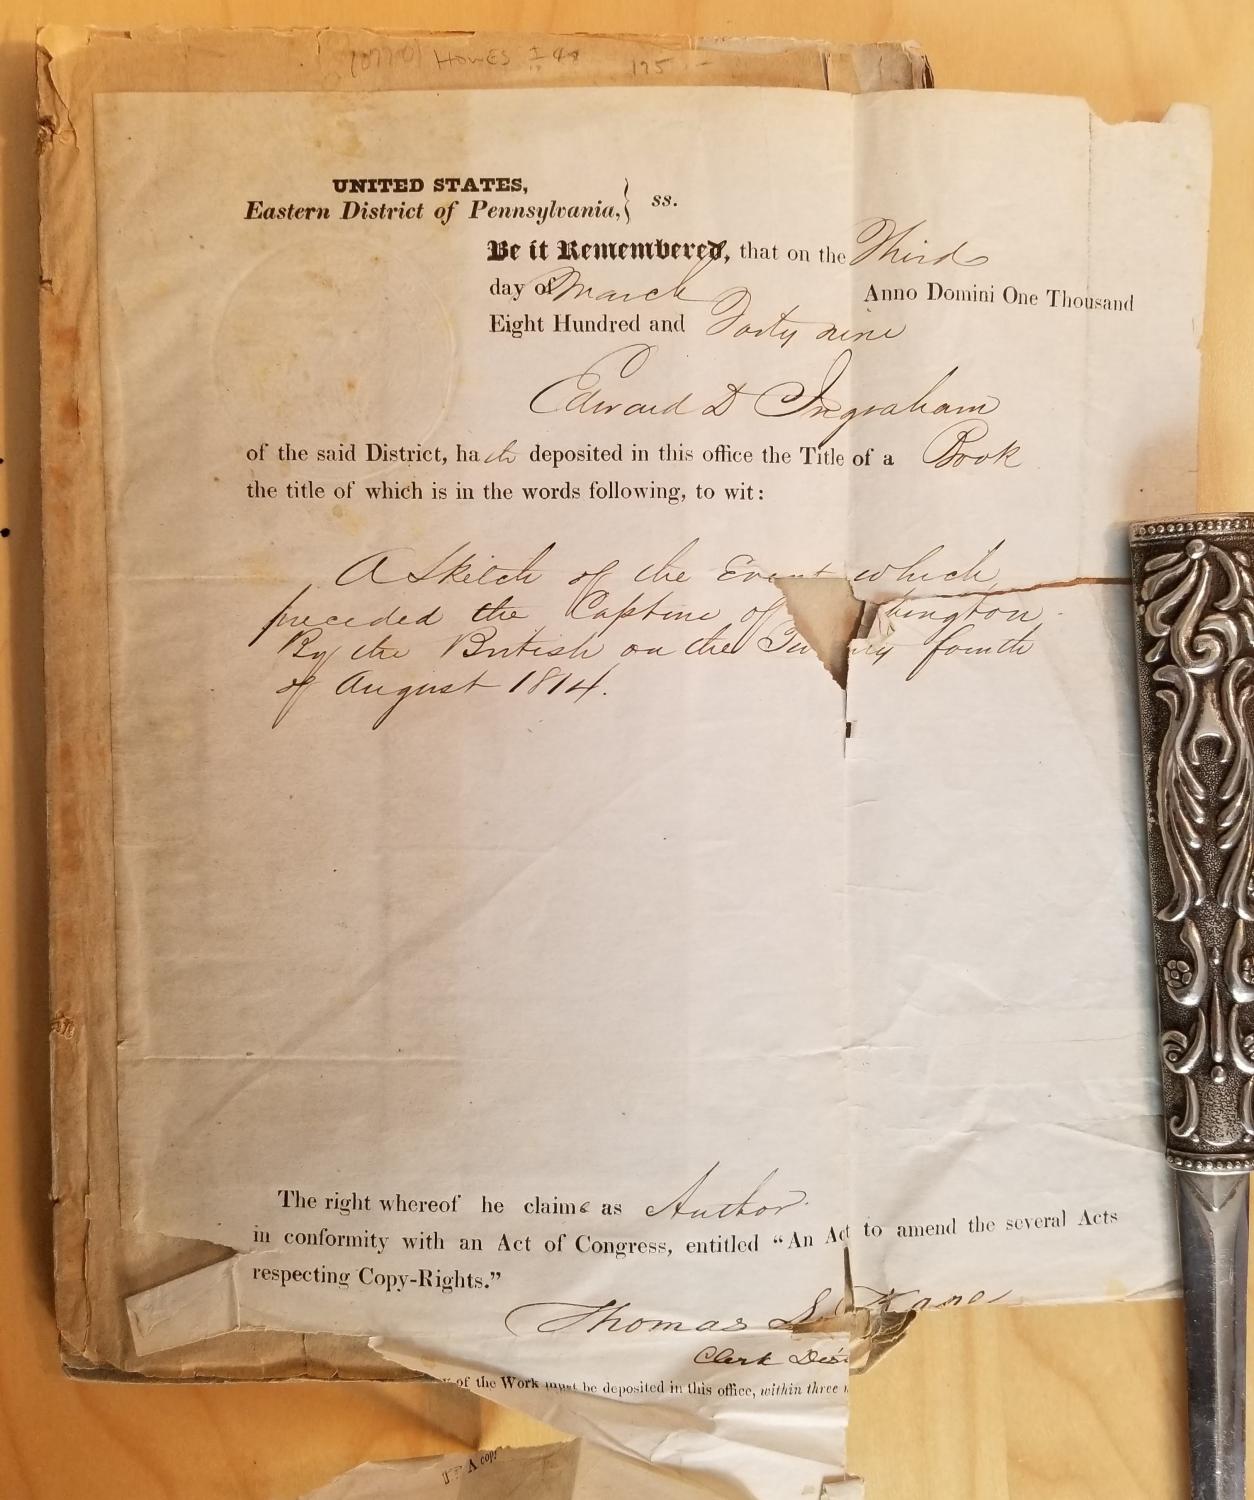 (0770) HOWES I 48 175 –
UNITED STATES,
Eastern District of Pennsylvania,} ss.
Be it Remembered, that on the Third
day of March Anno Domini One Thousand
Eight Hundred and Forty nine
Edward D Ingraham
of the said District, hath deposited in this office the Title of a Book
the title of which is in the words following, to wit:
A Sketch of the Event which
preceded the Capture of hington
By the British on the Twenty fourth
of August 1814.
The right whereof he claims as Author
in conformity with an Act of Congress, entitled “An Act to amend the several Acts
respecting Copy-Rights.”
Thomas L Kane
Clerk Dis
y of the Work must be deposited in this office, within three
A copy